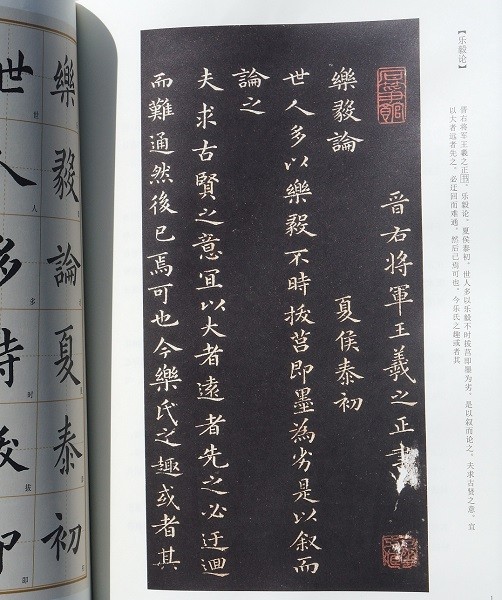 【乐毅论】
晋右将军王羲之正书。乐毅论。夏侯泰初。世人多以乐毅不时拔莒即墨为劣,是以叙而论之。夫求古贤之意,宜
以大者远者先之。必迂回而难通,然后已焉可也,今乐氏之趣或者其
晉右將軍王羲之正書
樂毅論 夏侯泰初
世人多以樂毅不時拔莒即墨為劣是以叙而
論之
夫求古賢之意宜以大者遠者先之必迂迴
而難通然後已焉可也今樂氏之趣或者其
樂毅論夏泰初
世人多時拔即
世
人
多
时
拔
即